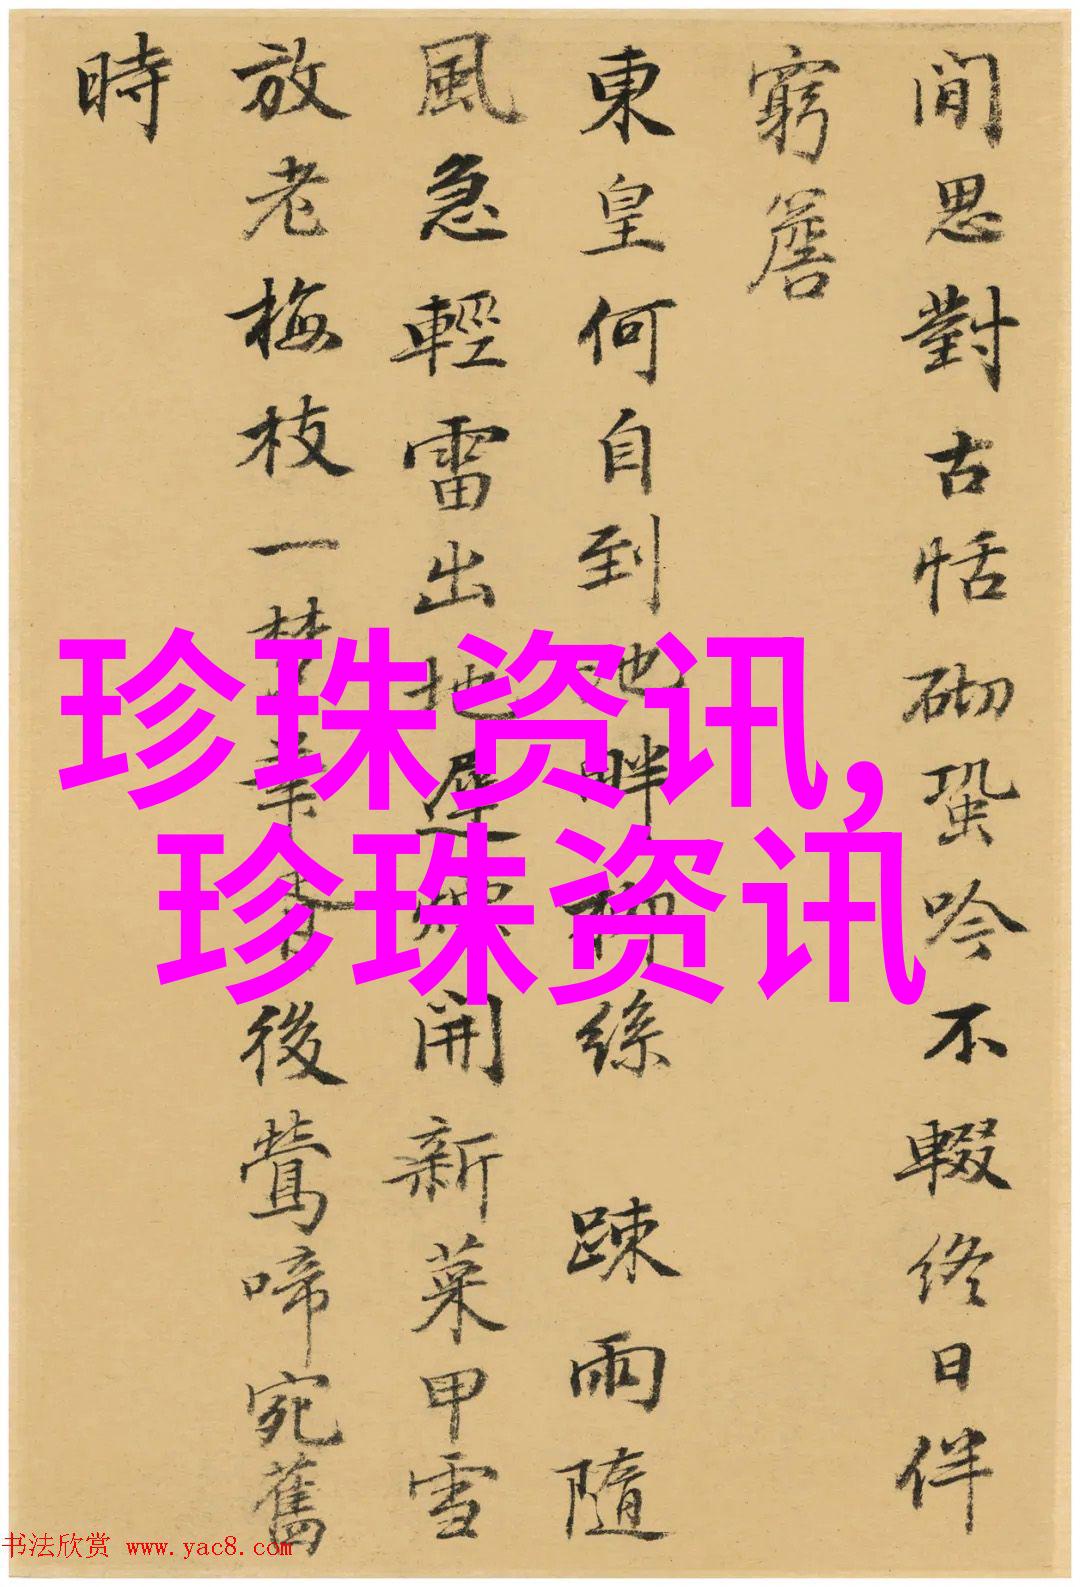 間思對古恬砌蛩吟不輟終日伴
窮簷
東皇何自到池畔柳絲 踈雨隨
風急輕雷出地遲煙開新菜甲雪
放老梅枝一梦華胥後鶯啼宛舊
時
珍珠资讯,
珍珠资讯
书法欣赏 www.yac8.com